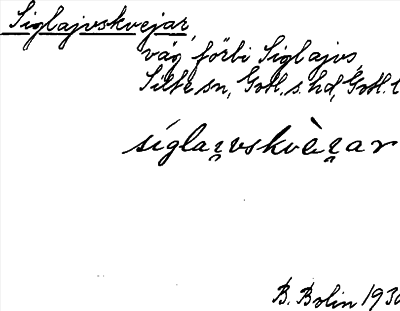 Siglajvskvejar,
väg förbi Siglajvs,
Silte sn, Gotl. s. hd, Gotl. l
siglai̯vskvèi̯ar
B. Bolin 193